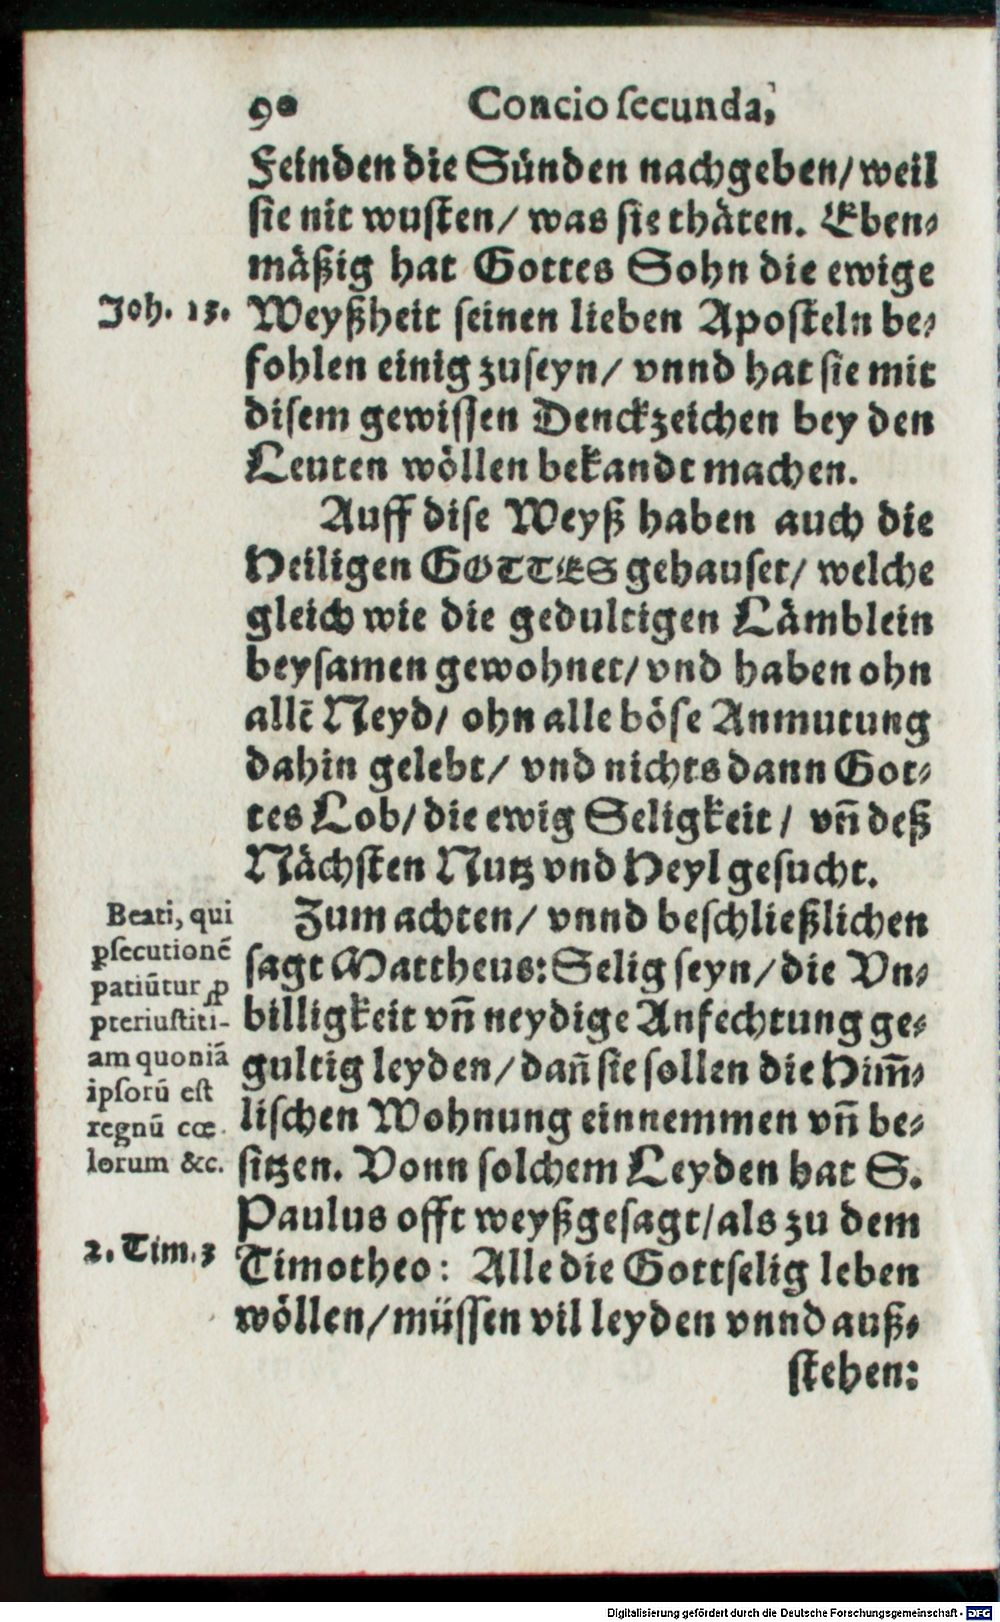 90 Concio secunda,
Feinden die Sünden nachgeben/ weil
sie nit wusten/ was sie thäten. Eben-
mäßig hat Gottes Sohn die ewige
Joh. 15.
Weyßheit seinen lieben Aposteln be-
fohlen einig zuseyn/ vnnd hat sie mit
disem gewissen Denckzeichen bey den
Leuten wöllen bekandt machen.
Auff dise Weyß haben auch die
Heiligen GOTTES gehauset/ welche
gleich wie die gedultigen Lämblein
beysamen gewohnet/ vnd haben ohn
allē Neyd/ ohn alle böse Anmutung
dahin gelebt/ vnd nichts dann Got-
tes Lob/ die ewig Seligkeit/ vn̄ deß
Nächsten Nutz vnd Heyl gesucht.
Zum achten/ vnnd beschließlichen
sagt Mattheus: Selig seyn/ die Vn-
billigkeit vn̄ neydige Anfechtung ge-
gultig leyden/ dan̄ sie sollen die Him̄-
lischen Wohnung einnemmen vn̄ be-
sitzen. Vonn solchem Leyden hat S.
Paulus offt weyßgesagt/ als zu dem
Timotheo: Alle die Gottselig leben
wöllen/ müssen vil leyden vnnd auß-
stehen:
Beati, qui
ꝑsecutionē
patiūtur ꝓ
pteriustiti-
am quoniā
ipsorū est
regnū cœ
lorum &c.
2. Tim. 3
Digitalisierung gefördert durch die Deutsche Forschungsgemeinschaft - DFG